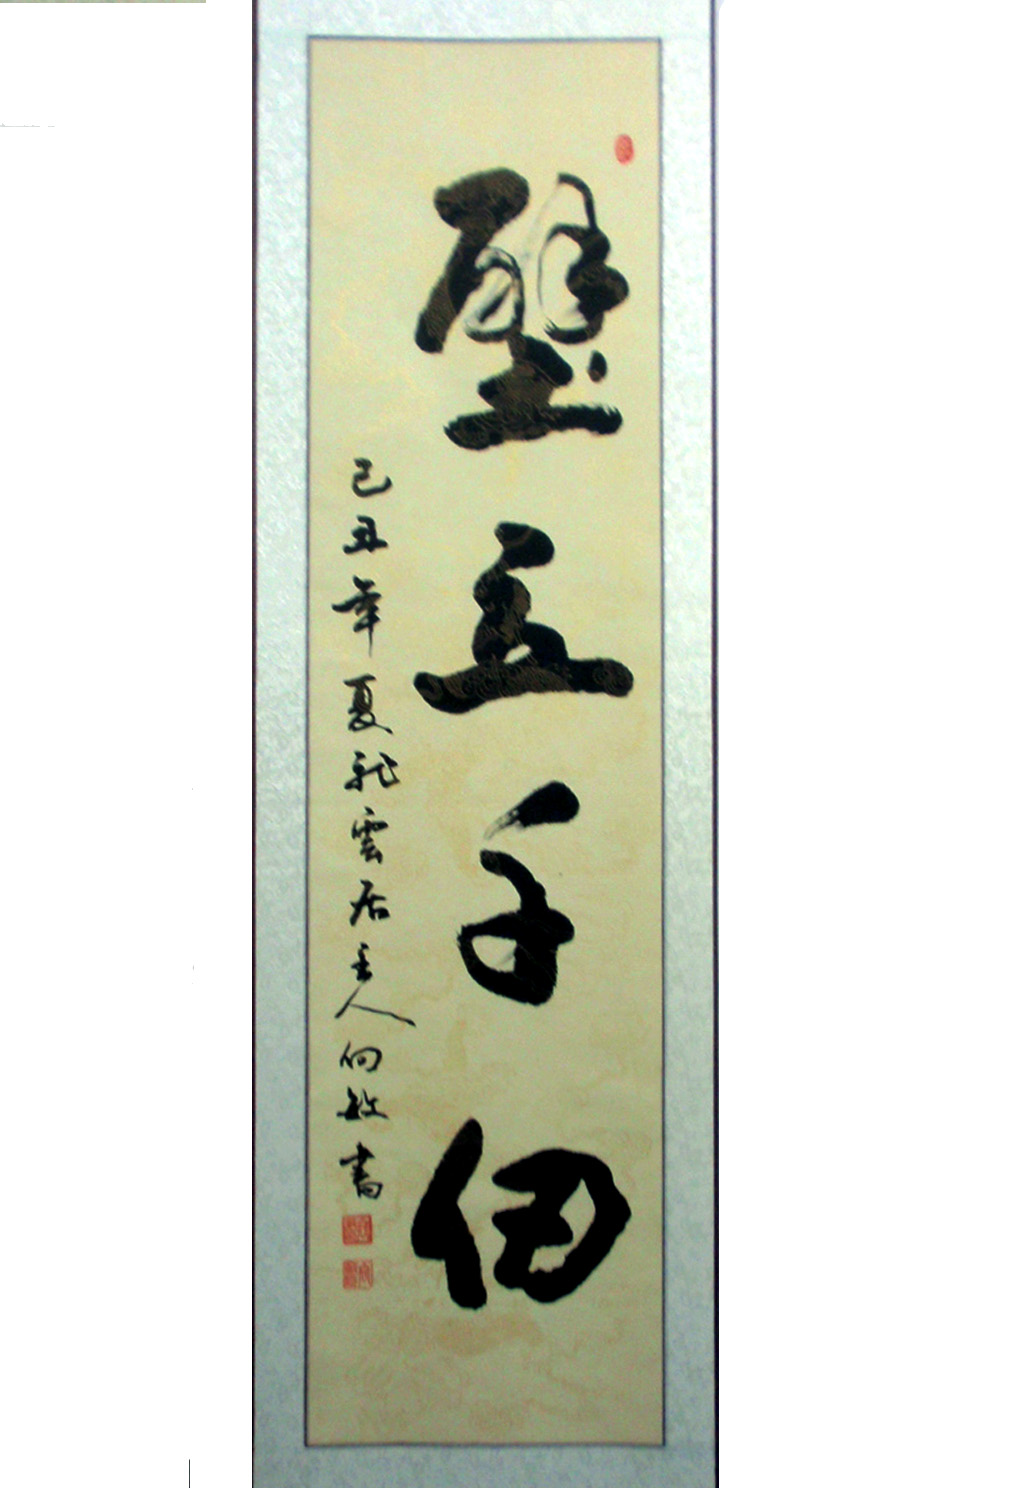 壁立千仞
己丑年夏龙雲居主人何敏書